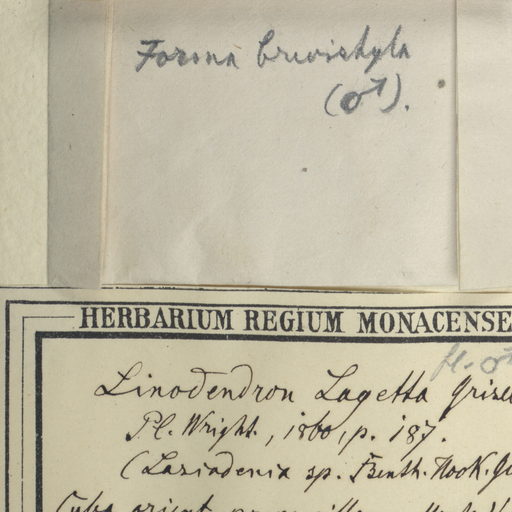 Forma brevistyla
(♂).
HERBARIUM REGIUM MONACENSE
fl. ♂
Linodendron Lagetta Griseb
Pl. Wright., 1860, p. 187.
(Lasiadenia sp. Benth. Hook. G
Cuba orient.